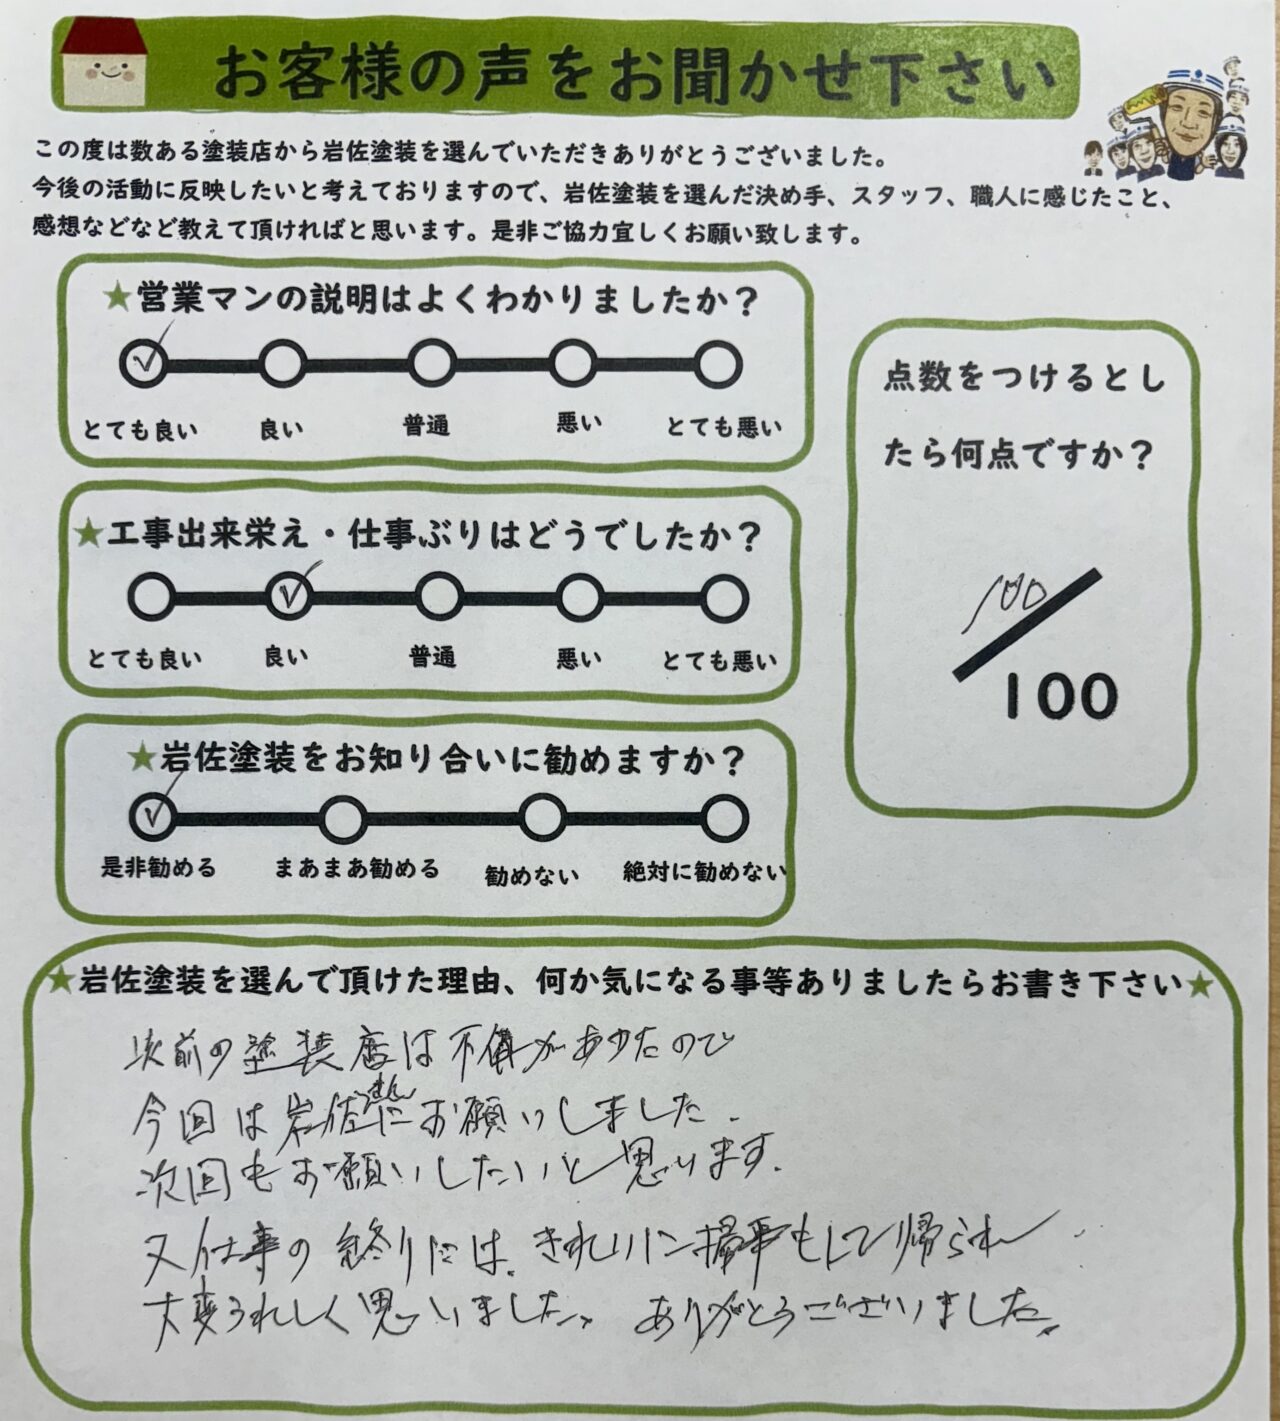 お客様の声をお聞かせ下さい
この度は数ある塗装店から岩佐塗装を選んでいただきありがとうございました。
今後の活動に反映したいと考えておりますので、岩佐塗装を選んだ決め手、スタッフ、職人に感じたこと、
感想などなど教えて頂ければと思います。是非ご協力宜しくお願い致します。
★営業マンの説明はよくわかりましたか？
とても良い 良い 普通 悪い とても悪い
★工事出来栄え・仕事ぶりはどうでしたか？
とても良い 良い 普通 悪い とても悪い
★岩佐塗装をお知り合いに勧めますか？
是非勧める まあまあ勧める 勧めない 絶対に勧めない
点数をつけるとし
たら何点ですか？
100
100
★岩佐塗装を選んで頂けた理由、何か気になる事等ありましたらお書き下さい★
以前の塗装店は不備があったので
今回は岩佐さんにお願いしました.
次回もお願いしたいと思います.
又仕事の終りには、きれいに掃除もして帰られ
大変うれしく思いました。ありがとうございました。